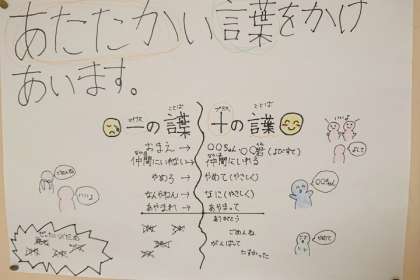 あたたかい言葉をかけ
あいます。
マイナス ことば
ーの言葉
プラス ことば
＋の言葉
おまえ → 〇〇ちゃん 〇〇君(よびすて)
なかま
仲間にいれない → 仲間にいれる
やめろ → やめて(やさしく)
なんやねん → なに(やさしく)
あやまれ → あやまって
ありがとう
ごめんね
がんばって
いいよ
〇〇ちゃん
やめて
ごめんね
いいよ